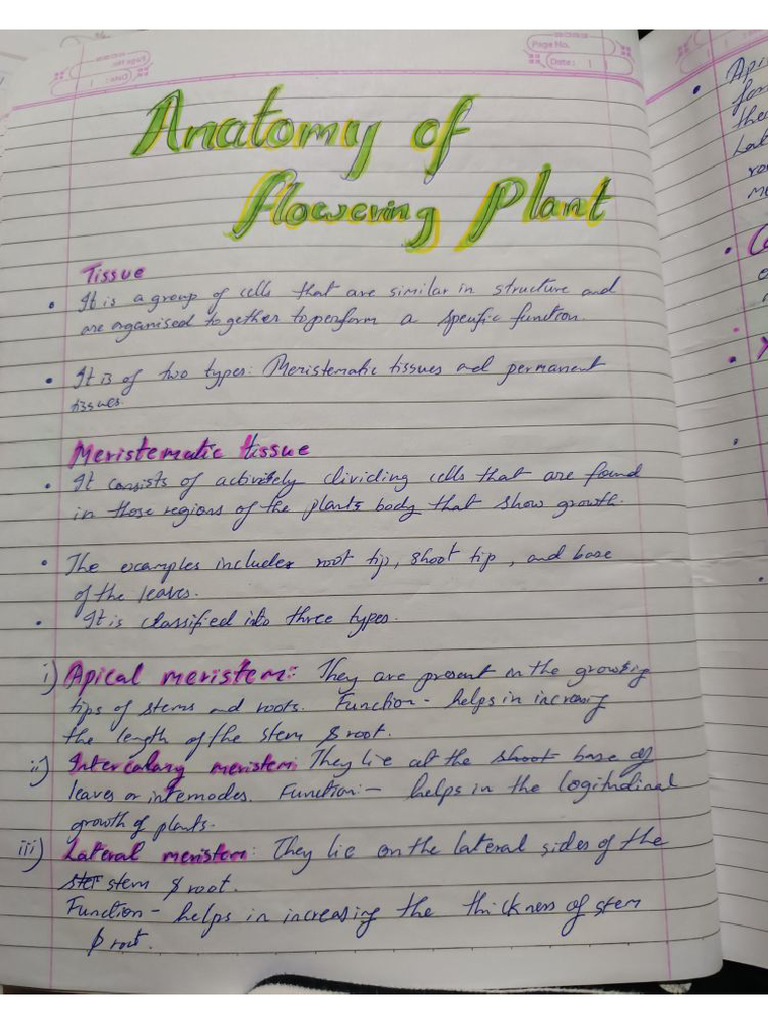 Page No.
Date:
Anatomy of
flowering Plant
Tissue
• It is a group of cells that are similar in structure and
are organised together to perform a specific function.
• It is of two types: Meristematic tissues and permanent
tissues.
Meristematic tissue
• It consists of actively dividing cells that are found
in those regions of the plants body that show growth.
• The examples includes root tip, shoot tip, and base
of the leaves.
• It is classified into three types.
i) Apical meristem:- They are present on the growing
tips of stems and roots. Function - helps in increasing
the length of the stem & root.
ii) Intercalary meristem: They lie at the shoot base of
leaves or internodes. Function:- helps in the logitudinal
growth of plants.
iii) Lateral meristem: They lie on the lateral sides of the
ster stem & root.
Function - helps in increasing the thickness of stem
& root.
• Api